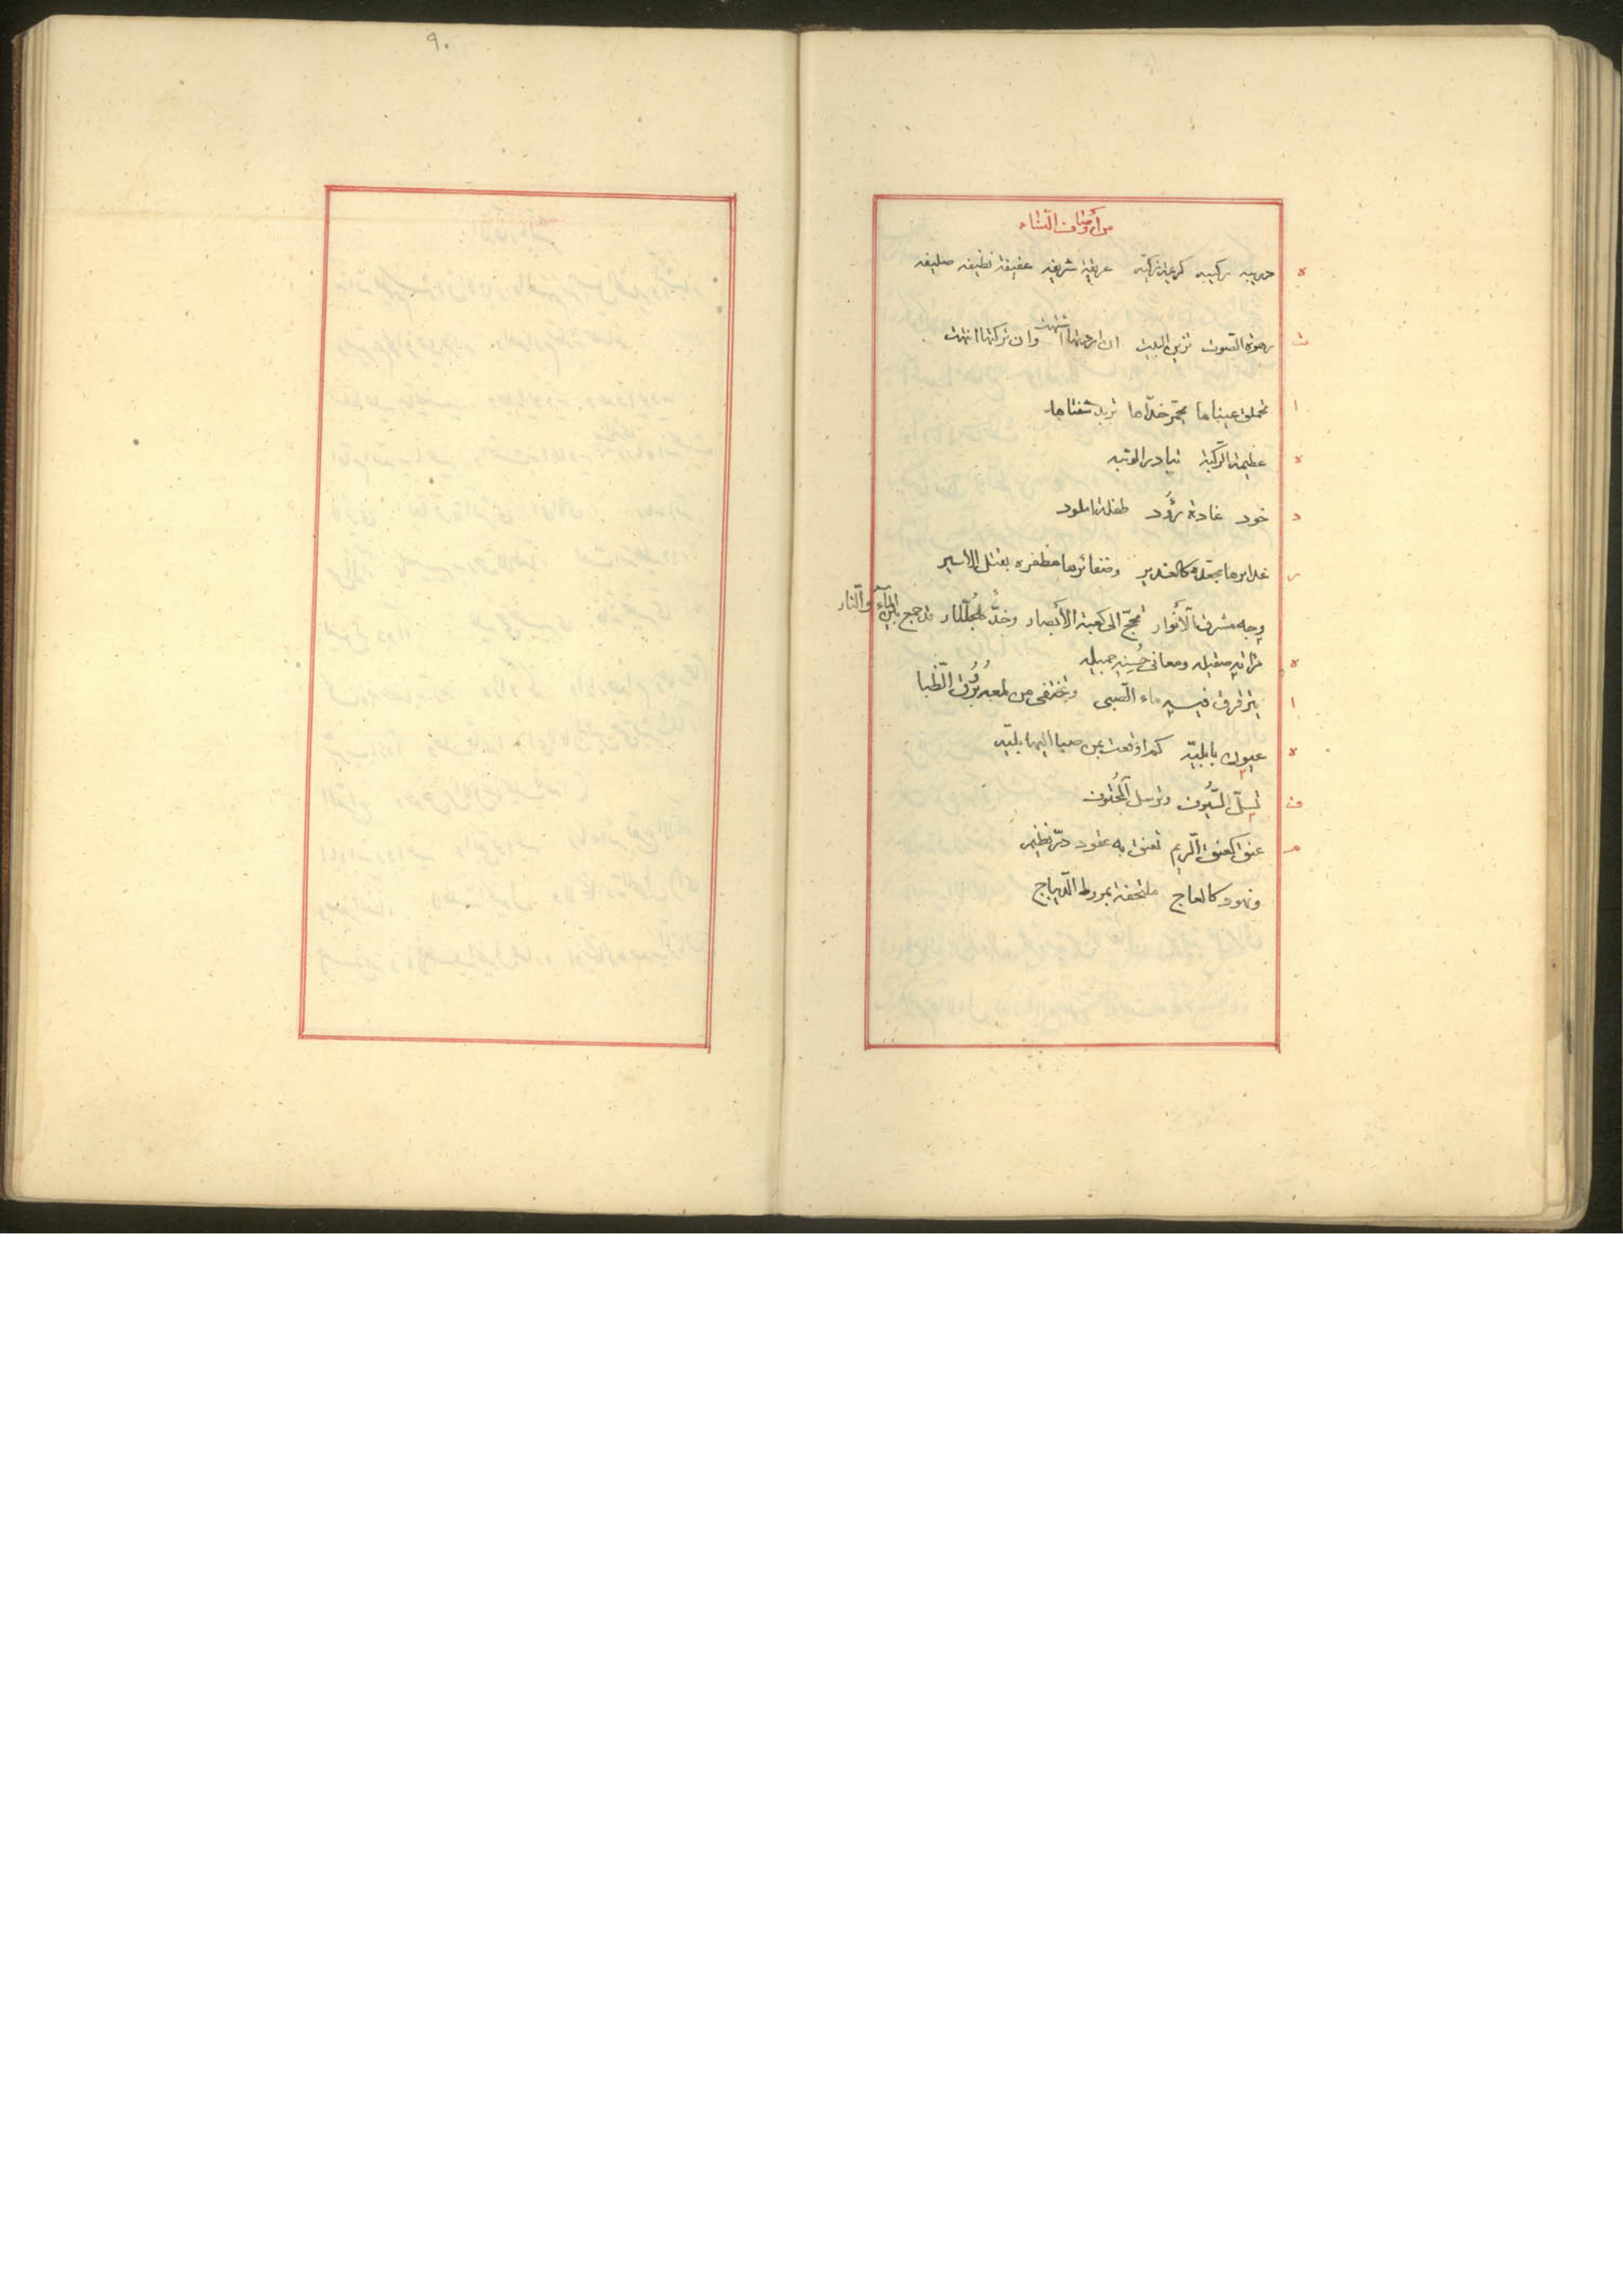 من أوصاف النساء
ه حبيبه ركيبه كريمة زكيّه عريقة شريفه عفيفة نظيفه
ت رهوة الصوت تزين البيت ان اردتها اشتهت وان تركتها انتهت
ا تحملق عيناها تحمّر خدّاها تربد شفتاها
ه عظيمة الركبة تبادر الوثبه
د خود غادة رؤد طفلة املود
ر غدايرها كالغدير وضفائرها مظفره بقتل الاسير
وجه مشرق الأنوار تحجّ الى كعبته الأبصار وخدّ كالجُلّنار قد جمع بين المآء والنار
ه مرآته صقيله ومعانى حُسنه جميله
ا يترقرق فيه ماء الصبى وتختفى من لمعه بُرُق الظّبا
ه عيون بابليّه كم اوقعت من صبا اليها بليّه
ف تسلّ السُّيوف وترسل الحُتوف
م عنق كعنق الرّيم تعنق به عقود درّ نظيم
ونهود كالعاج ملتحفة بمروط الدّيباج
٩٠